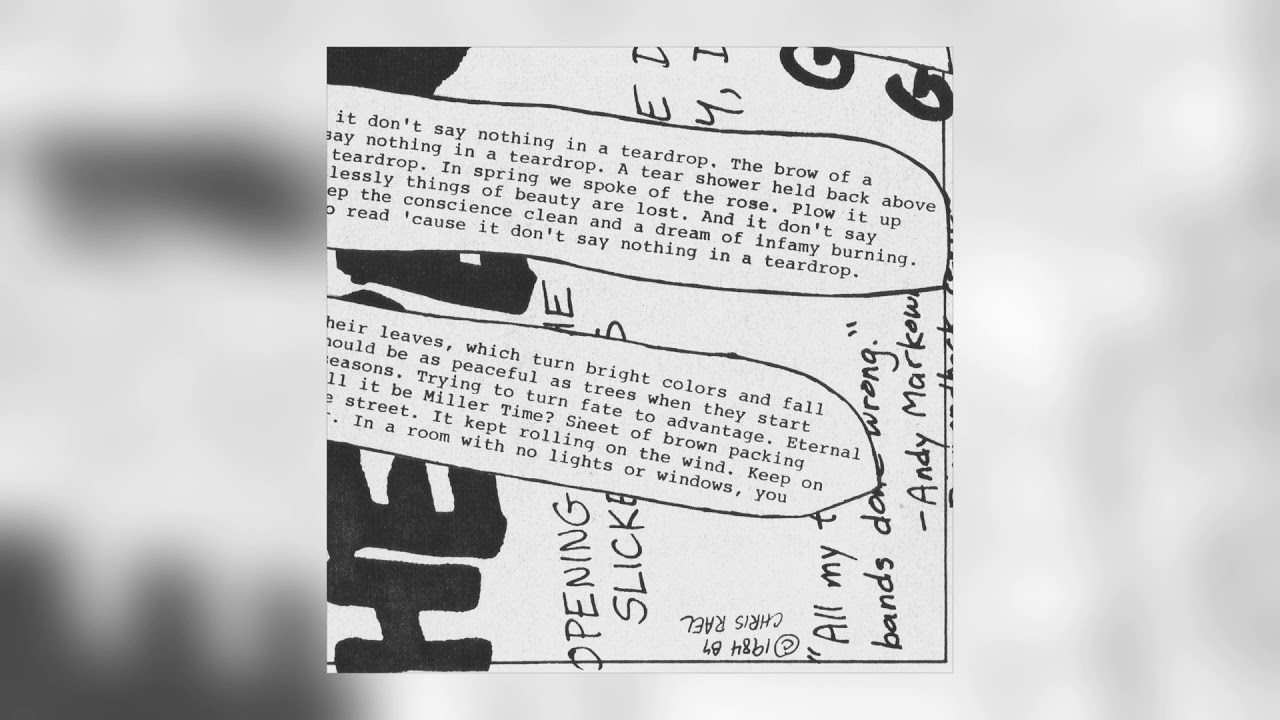 it don't say nothing in a teardrop. The brow of a
say nothing in a teardrop. A tear shower held back above
teardrop. In spring we spoke of the rose. Plow it up
lessly things of beauty are lost. And it don't say
ep the conscience clean and a dream of infamy burning.
o read 'cause it don't say nothing in a teardrop.
heir leaves, which turn bright colors and fall
hould be as peaceful as trees when they start
easons. Trying to turn fate to advantage. Eternal
ll it be Miller Time? Sheet of brown packing
e street. It kept rolling on the wind. Keep on
. In a room with no lights or windows, you
HE
E D
Y, I
G
G
OPENING
SLICKE
"All my
bands done wrong."
-Andy Markow
©1984 BY
CHRIS RAEL